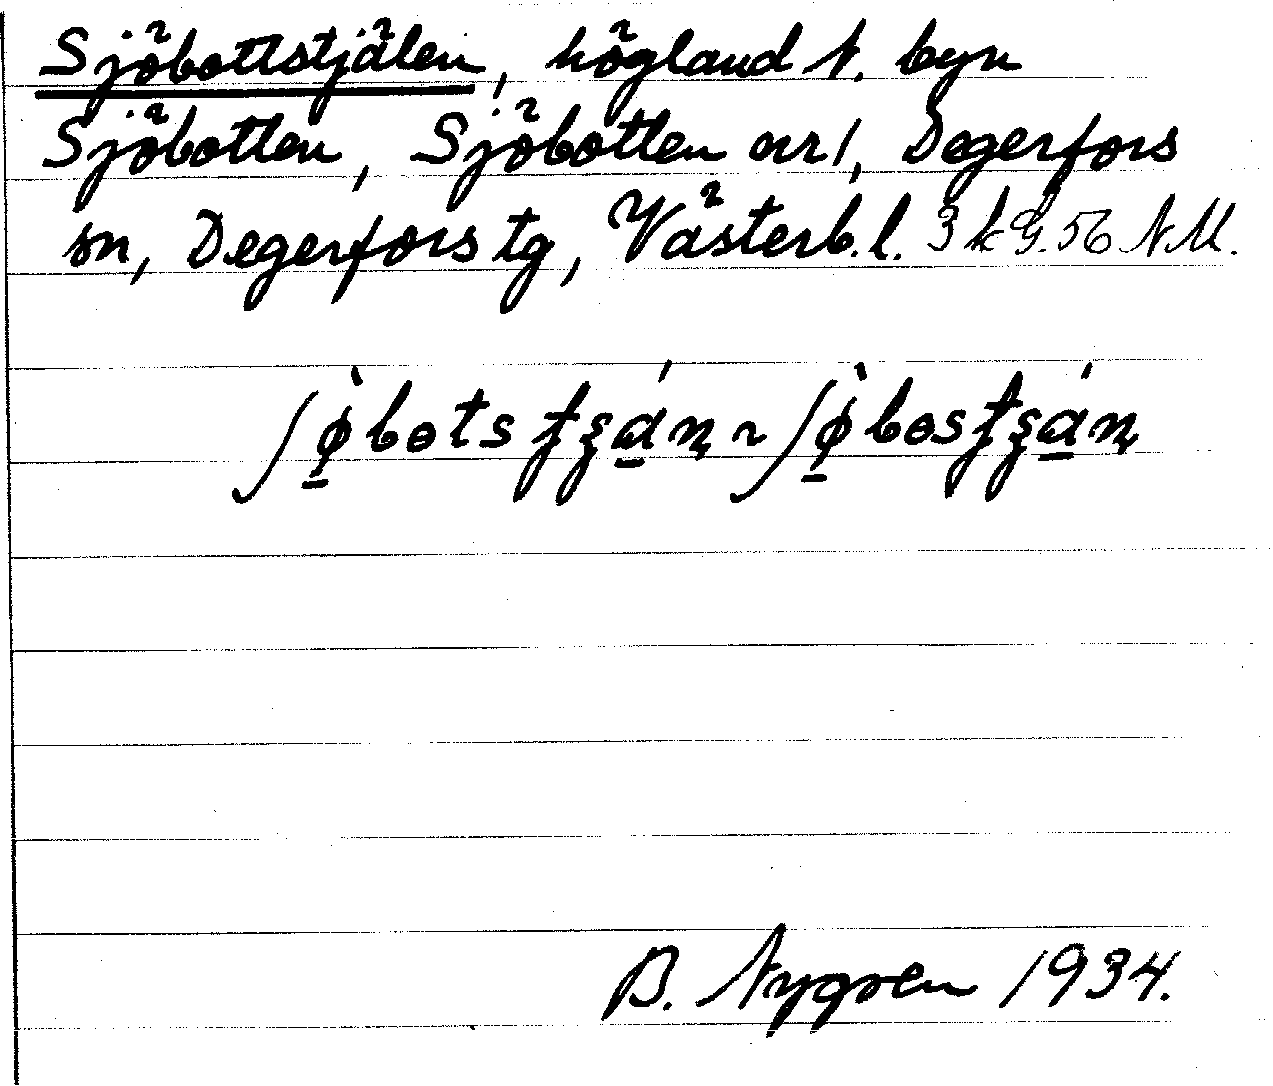 Sjöbottstjälen, högland N. byn
Sjöbotten, Sjöbotten nr 1, Degerfors
sn, Degerfors tg, Västerb. l. 3 k G. 56 N.M.
B. Nygren 1934.